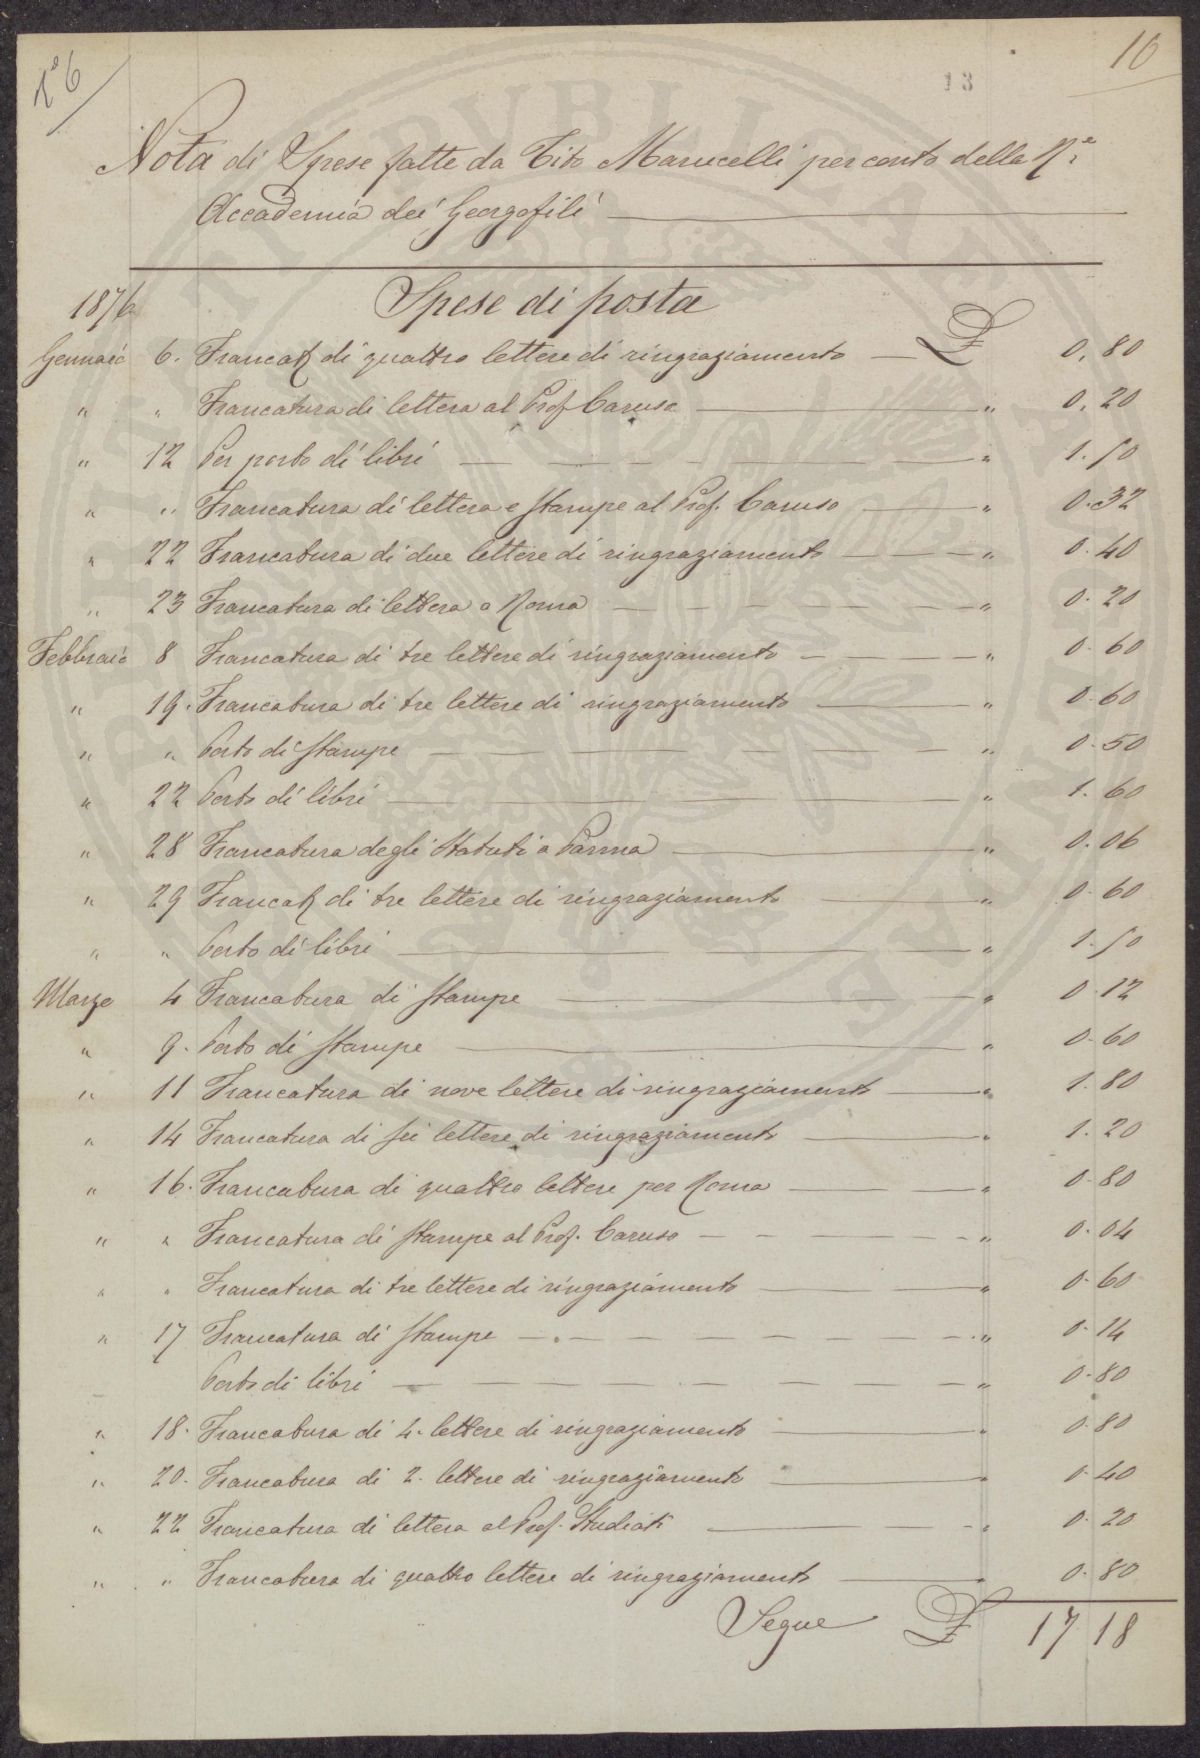 N° 6
13
16
Nota di Spese fatte da Tito Marucelli per conto della Rle
Accademia dei Georgofili
1876 Spese di posta
Gennaio 6. Francat. di quattro lettere di ringraziamento £ 0.80
" " Francatura di lettera al Prof. Caruso " 0.20
" 12 Per porto di libri " 1.50
" " Francatura di lettera e stampe al Prof. Caruso " 0.32
" 22 Francatura di due lettere di ringraziamento " 0.40
" 23 Francatura di lettera a Roma " 0.20
Febbraio 8 Francatura di tre lettere di ringraziamento " 0.60
" 19. Francatura di tre lettere di ringraziamento " 0.60
" " Porto di stampe " 0.50
" 22 Porto di libri " 1.60
" 28 Francatura degli Statuti a Parma " 0.06
" 29 Francat. di tre lettere di ringraziamento " 0.60
" " Porto di libri " 1.50
Marzo 4 Francatura di stampe " 0.12
" 9. Porto di stampe " 0.60
" 11 Francatura di nove lettere di ringraziamento " 1.80
" 14 Francatura di sei lettere di ringraziamento " 1.20
" 16. Francatura di quattro lettere per Roma " 0.80
" " Francatura di stampe al Prof. Caruso " 0.04
" " Francatura di tre lettere di ringraziamento " 0.60
" 17 Francatura di stampe " 0.14
Porto di libri " 0.80
" 18. Francatura di 4. lettere di ringraziamento " 0.80
" 20. Francatura di 2. lettere di ringraziamento " 0.40
" 22 Francatura di lettera al Prof. Studiati " 0.20
" " Francatura di quattro lettere di ringraziamento " 0.80
Segue £ 17 18